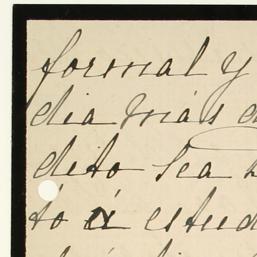 formal y
dia más
dito sea
to á estud